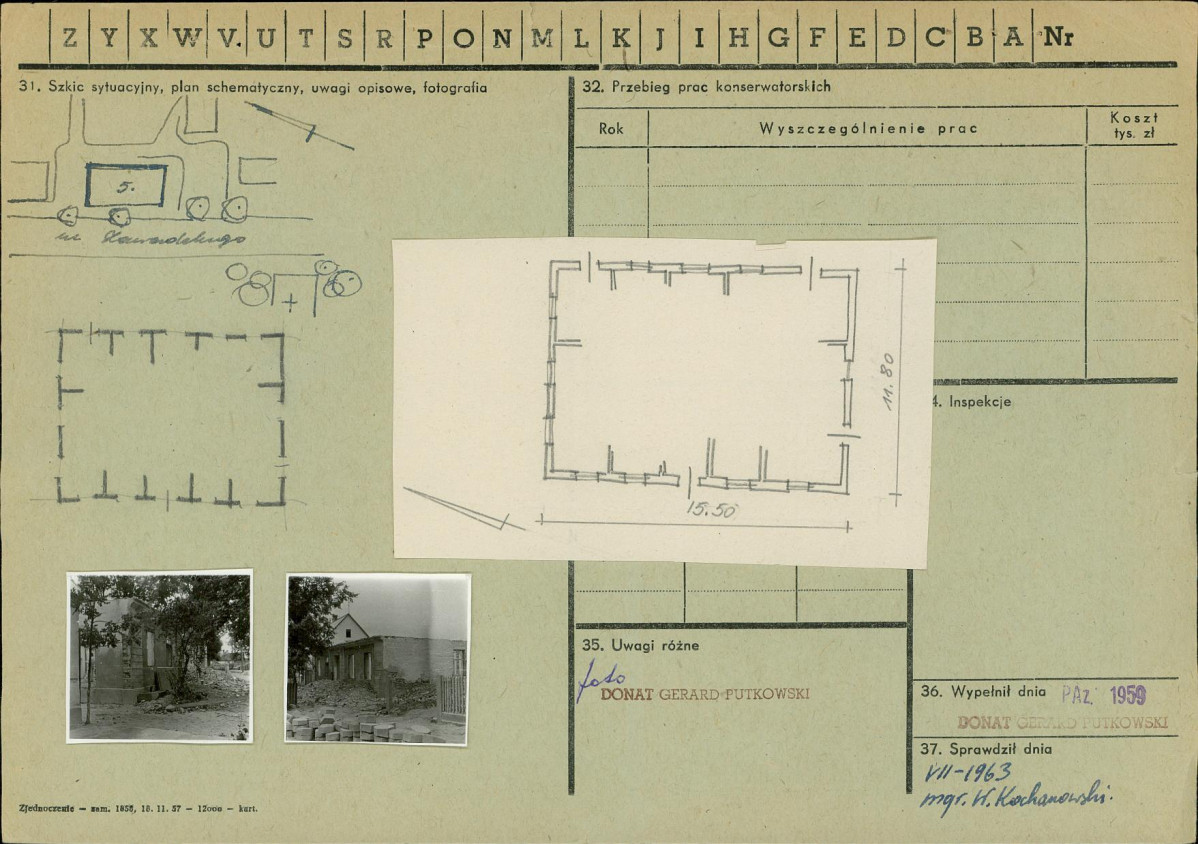 Z Y X W V. U T S R P O N M L K J I H G F E D C B A Nr
31. Szkic sytuacyjny, plan schematyczny, uwagi opisowe, fotografia
5.
ul.
32. Przebieg prac konserwatorskich
Rok
Wyszczególnienie prac
Koszt
tys. zł
11.80
15.50
4. Inspekcje
35. Uwagi różne
foto
DONAT GERARD PUTKOWSKI
36. Wypełnił dnia PAŹ. 1959
DONAT GERARD PUTKOWSKI
37. Sprawdził dnia
VII-1963
mgr. W. Kochanowski.
Zjednoczenie — zam. 1858, 18. 11. 57 — 12000 — kart.